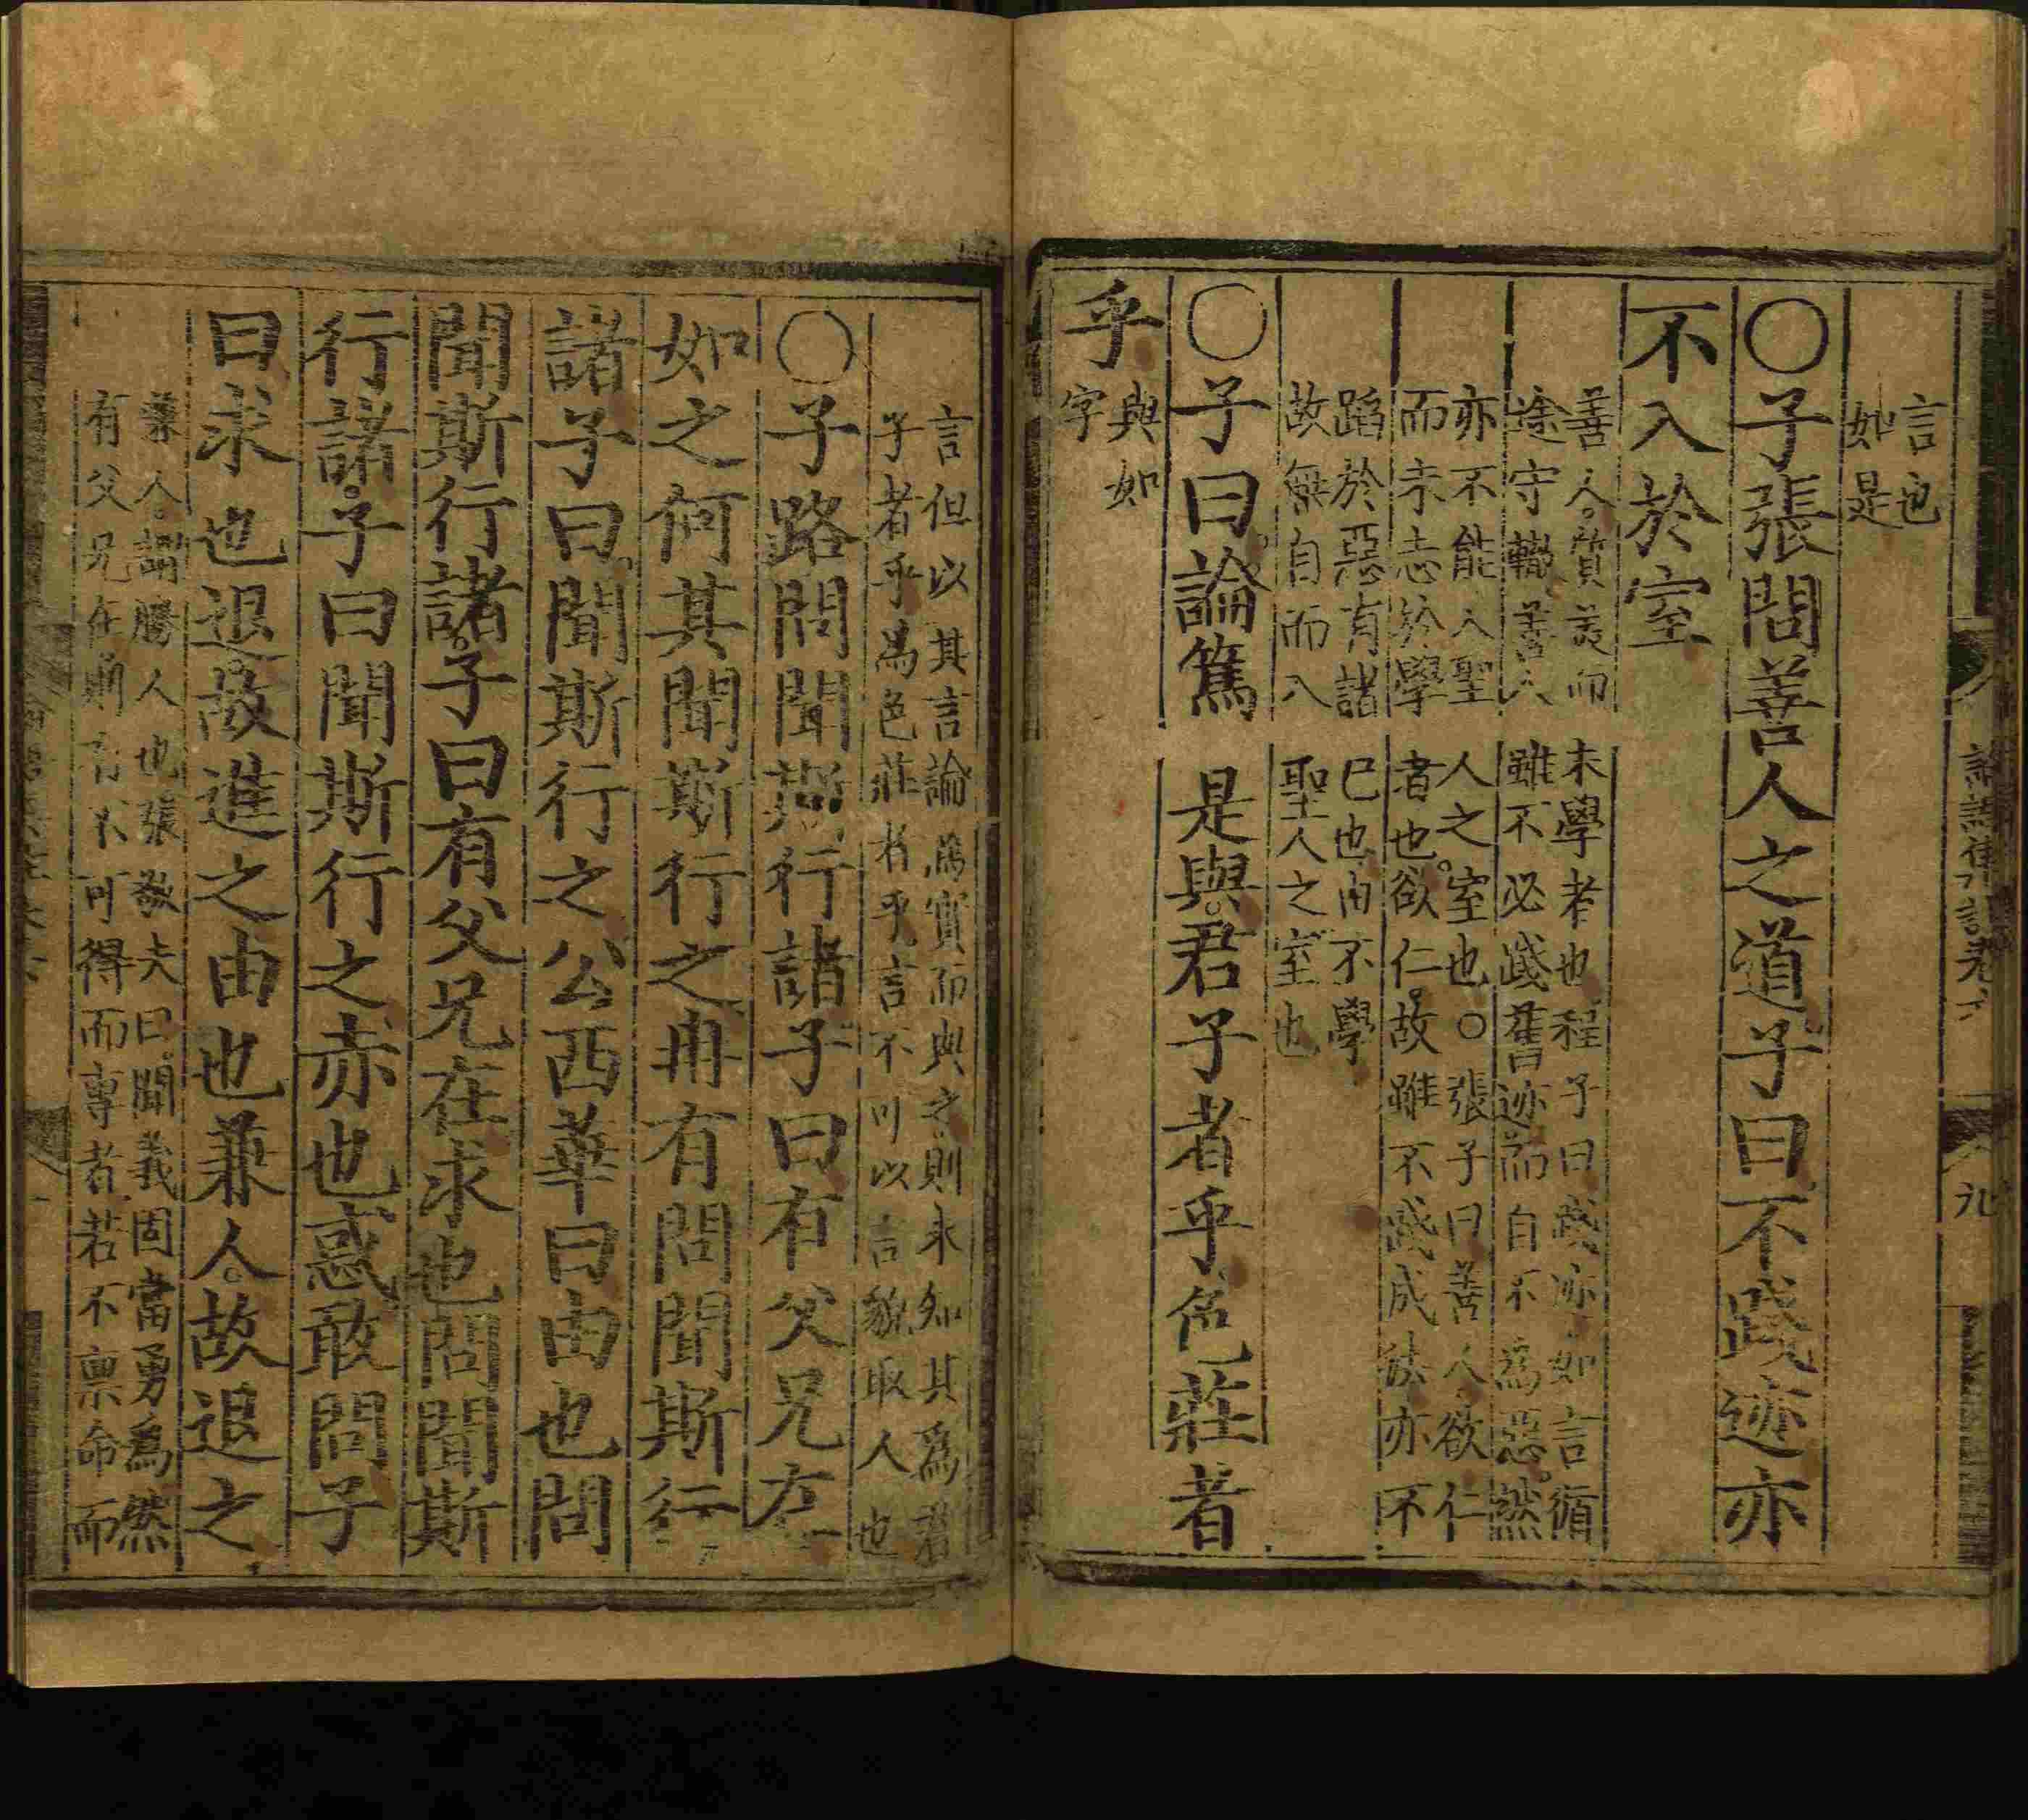 言也
如是
○子張問善人之道子曰不踐迹亦
不入於室
善人質美而未學者也程子曰踐迹如言循
途守轍善人雖不必踐舊迹而自不為惡然
亦不能入聖人之室也○張子曰善人欲仁
而未志於學者也欲仁故雖不踐成法亦不
蹈於惡有諸已也由不學
故無自而入聖人之室也
○子曰論篤是與君子者乎色莊者
乎
與如
字
言但以其言論為實而與之則未知其為君
子者乎為色莊者乎言不可以言貌取人也
○子路問聞斯行諸子曰有父兄在
如之何其聞斯行之冉有問聞斯行
諸子曰聞斯行之公西華曰由也問
聞斯行諸子曰有父兄在求也問聞斯
行諸子曰聞斯行之赤也惑敢問子
曰求也退故進之由也兼人故退之
兼人謂勝人也張敬夫曰聞義固當勇為然
有父兄在則有不可得而專者若不稟命而
九